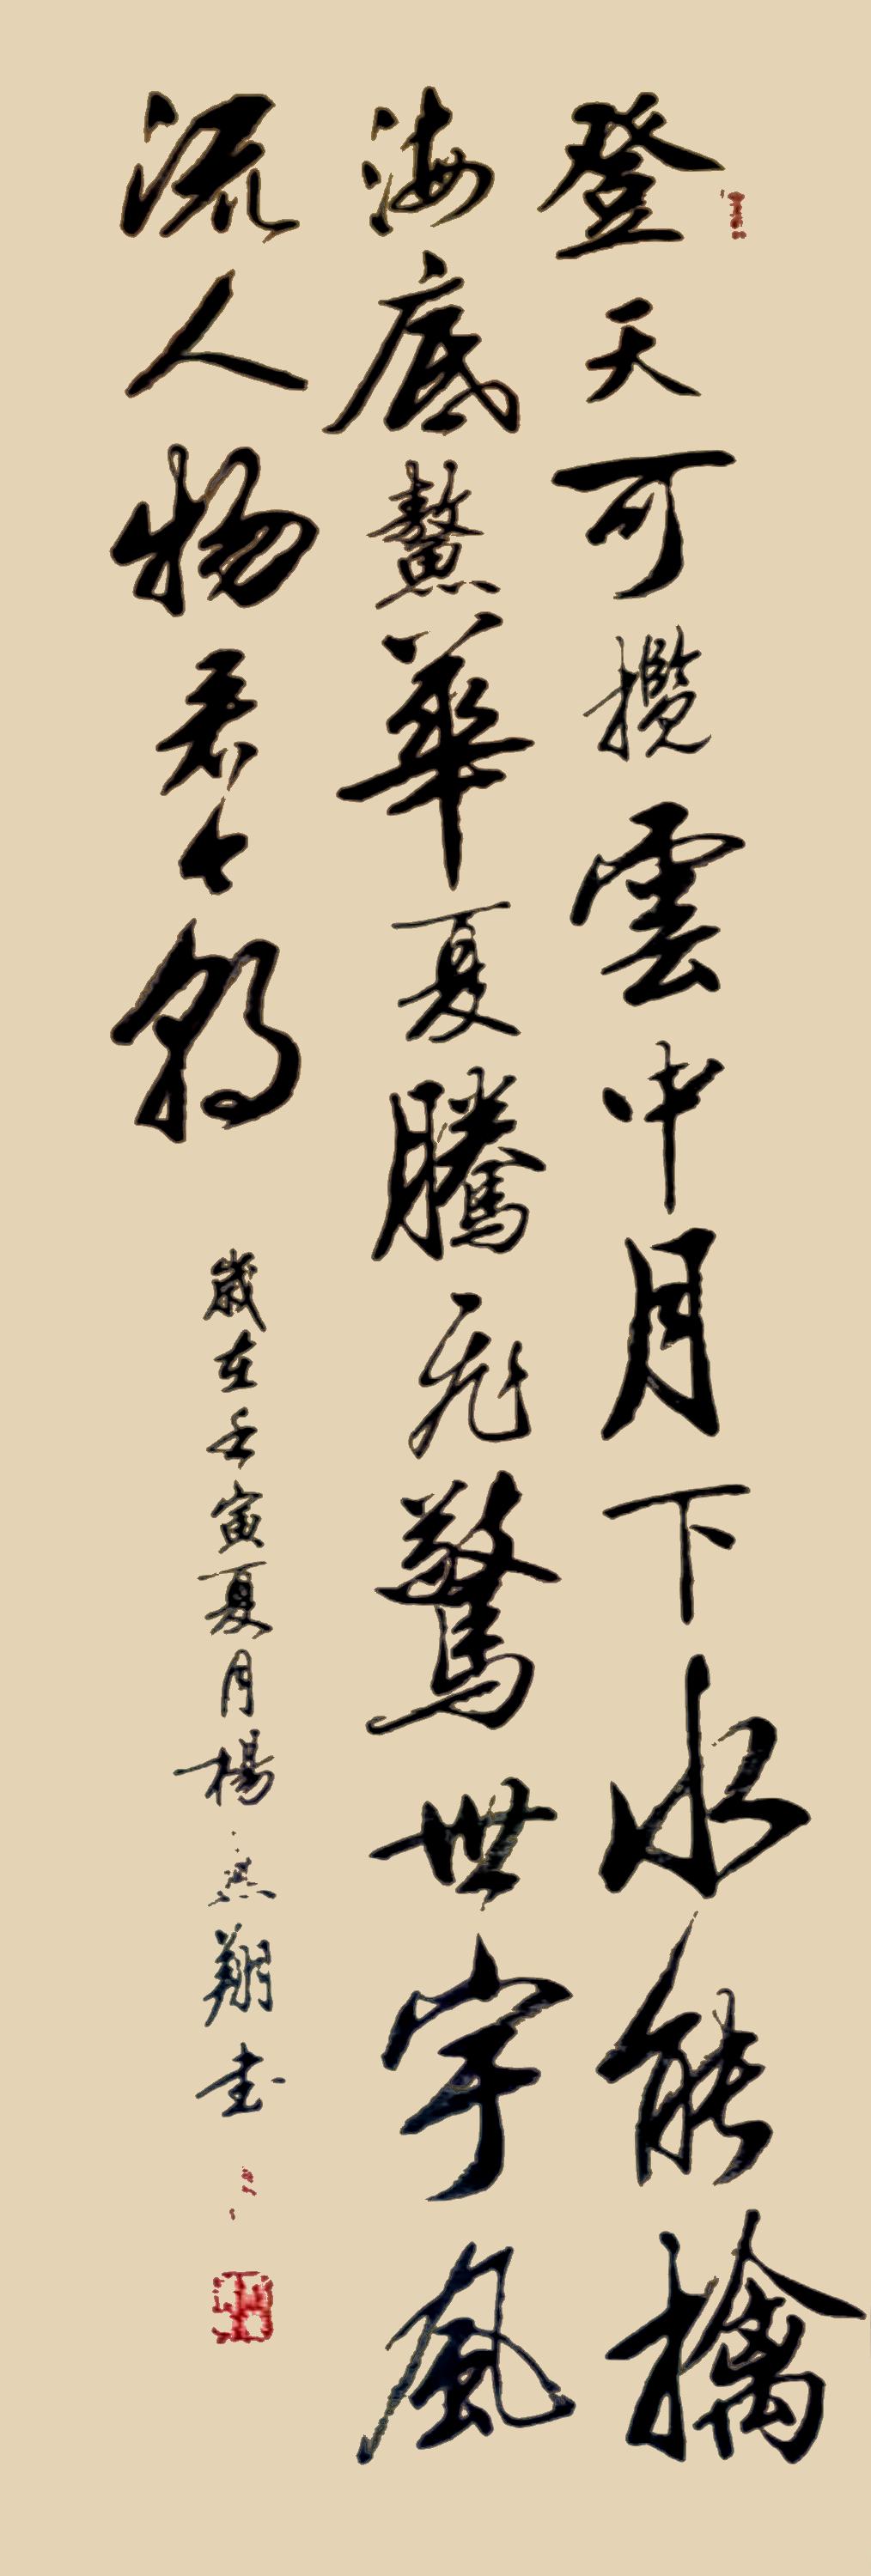 登天可攬雲中月下水能擒
海底鰲華夏騰飛驚世宇風
流人物看今朝
歲在壬寅夏月楊燕翔書